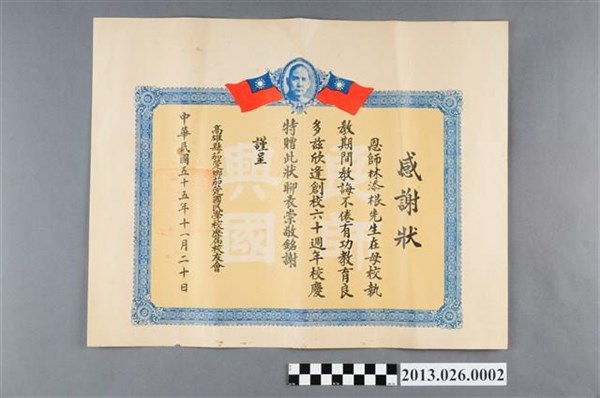 感謝狀
恩師林添根先生在母校執
教期間教誨不倦有功教育良
多茲欣逢創校六十週年校慶
特贈此狀聊表崇敬銘謝
謹呈
高雄縣茄萣鄉茄萣國民學校歷屆校友會
中華民國五十五年十一月二十日
興國
2013.026.0002